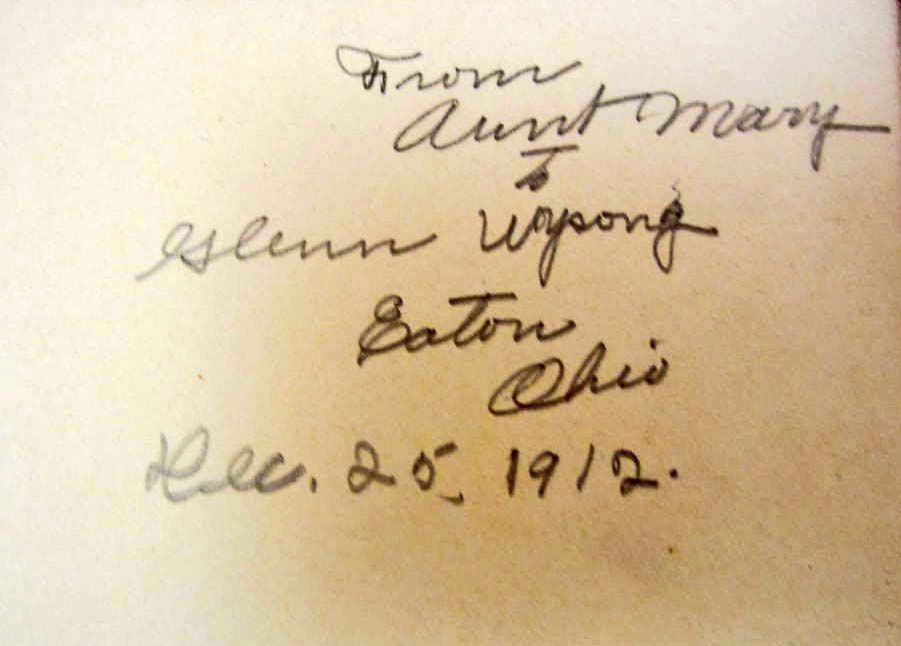 From
Aunt Mary
To
Glenn Wysong
Eaton
Ohio
Dec. 25, 1912.